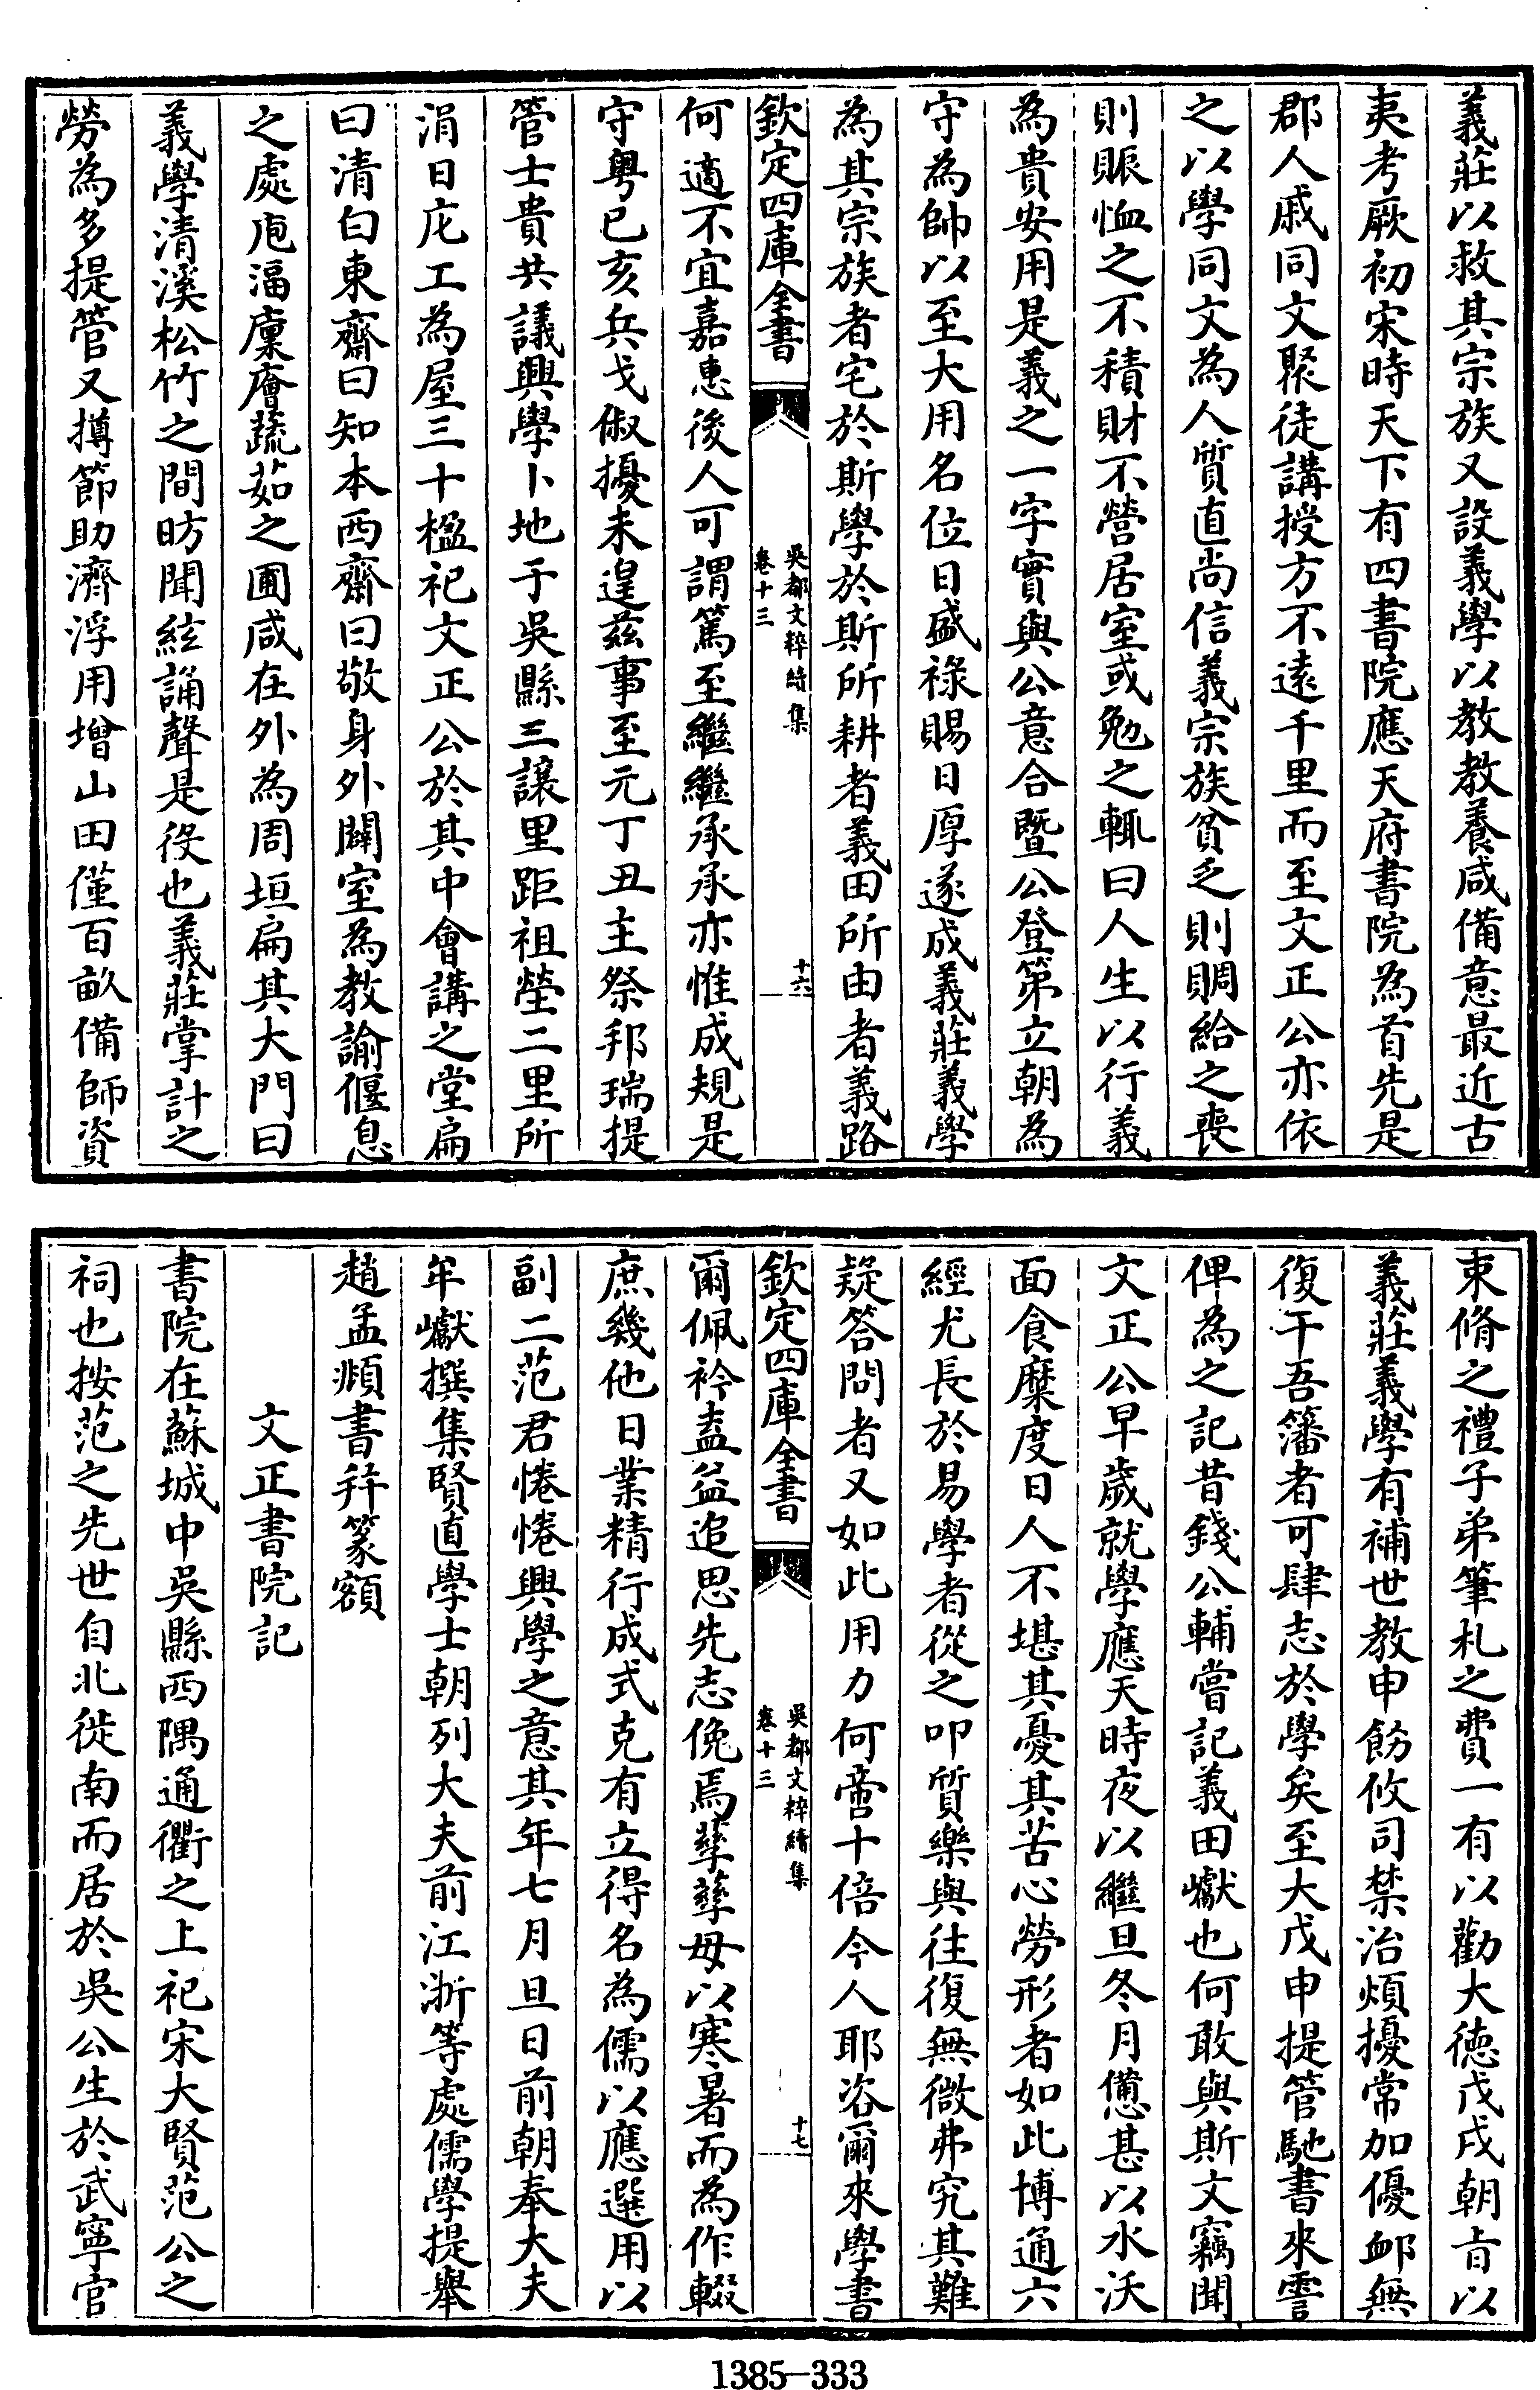 義莊以救其宗族又設義學以教教養咸備意最近古
夷考厥初宋時天下有四書院應天府書院為首先是
郡人戚同文聚徒講授方不遠千里而至文正公亦依
之以學同文為人質直尚信義宗族貧乏則賙給之喪
則賑恤之不積財不營居室或勉之輒曰人生以行義
為貴安用是義之一字實與公意合暨公登第立朝為
守為帥以至大用名位日盛祿賜日厚遂成義莊義學
為其宗族者宅於斯學於斯所耕者義田所由者義路
欽定四庫全書
吳都文粹續集
卷十三
十六
何適不宜嘉惠後人可謂篤至繼繼承承亦惟成規是
守粤已亥兵戈俶擾未遑兹事至元丁丑主祭邦瑞提
管士貴共議興學卜地于吳縣三讓里距祖塋二里所
涓日庀工為屋三十楹祀文正公於其中會講之堂扁
曰清白東齋曰知本西齋曰敬身外闢室為教諭偃息
之處庖湢廩廥蔬茹之圃咸在外為周垣扁其大門曰
義學清溪松竹之間昉聞絃誦聲是役也義莊掌計之
勞為多提管又撙節助濟浮用增山田僅百畝備師資
束脩之禮子弟筆札之費一有以勸大德戊戌朝旨以
義莊義學有補世教申飭攸司禁治煩擾常加優卹無
復干吾籓者可肆志於學矣至大戊申提管馳書來雲
俾為之記昔錢公輔嘗記義田巘也何敢與斯文竊聞
文正公早歲就學應天時夜以繼旦冬月憊甚以水沃
面食糜度日人不堪其憂其苦心勞形者如此博通六
經尤長於易學者從之叩質樂與往復無微弗究其難
疑答問者又如此用力何啻十倍今人耶咨爾來學書
欽定四庫全書
吳都文粹續集
卷十三
十七
爾佩衿盍益追思先志俛焉孳孳毋以寒暑而為作輟
庶幾他日業精行成式克有立得名為儒以應選用以
副二范君惓惓興學之意其年七月旦日前朝奉大夫
牟巘撰集賢直學士朝列大夫前江浙等處儒學提舉
趙孟頫書幷篆額
文正書院記
書院在蘇城中吳縣西隅通衢之上祀宋大賢范公之
祠也按范之先世自北徙南而居於吳公生於武寧官
1385-333